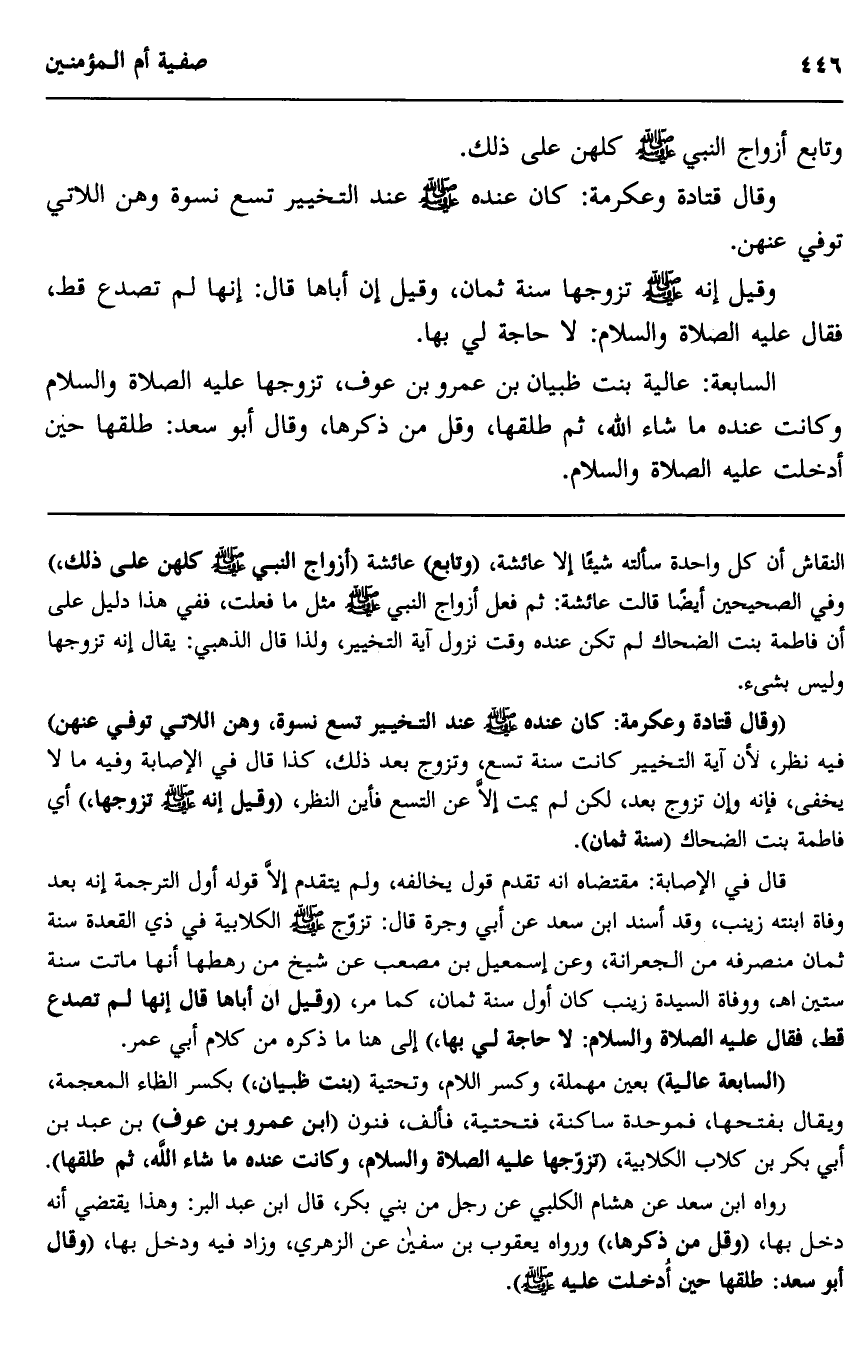 ٤٤٦ صفية أم المؤمنين
وتابع أزواج النبي ﷺ كلهن على ذلك.
وقال قتادة وعكرمة: كان عنده ﷺ عند التخيير تسع نسوة وهن اللاتي
توفي عنهن.
وقيل إنه ﷺ تزوجها سنة ثمان، وقيل إن أباها قال: إنها لم تصدع قط،
فقال عليه الصلاة والسلام: لا حاجة لي بها.
السابعة: عالية بنت ظبيان بن عمرو بن عوف، تزوجها عليه الصلاة والسلام
وكانت عنده ما شاء الله، ثم طلقها، وقل من ذكرها، وقال أبو سعد: طلقها حين
أدخلت عليه الصلاة والسلام.
النقاش أن كل واحدة سألته شيئًا إلا عائشة، (وتابع) عائشة (أزواج النبي ﷺ كلهن على ذلك،)
وفي الصحيحين أيضًا قالت عائشة: ثم فعل أزواج النبي ﷺ مثل ما فعلت، ففي هذا دليل على
أن فاطمة بنت الضحاك لم تكن عنده وقت نزول آية التخيير، ولذا قال الذهبي: يقال إنه تزوجها
وليس بشىء.
(وقال قتادة وعكرمة: كان عنده ﷺ عند التخيير تسع نسوة، وهن اللاتي توفي عنهن)
فيه نظر، لأن آية التخيير كانت سنة تسع، وتزوج بعد ذلك، كذا قال في الإصابة وفيه ما لا
يخفى، فإنه وإن تزوج بعد، لكن لم يمت إلاَّ عن التسع فأين النظر، (وقيل إنه ﷺ تزوجها،) أي
فاطمة بنت الضحاك (سنة ثمان).
قال في الإصابة: مقتضاه انه تقدم قول يخالفه، ولم يتقدم إلاَّ قوله أول الترجمة إنه بعد
وفاة ابنته زينب، وقد أسند ابن سعد عن أبي وجرة قال: تزوّج ﷺ الكلابية في ذي القعدة سنة
ثمان منصرفه من الجعرانة، وعن إسمعيل بن مصعب عن شيخ من رهطها أنها ماتت سنة
ستين اهـ، ووفاة السيدة زينب كان أول سنة ثمان، كما مر، (وقيل ان أباها قال إنها لم تصدع
قط، فقال عليه الصلاة والسلام: لا حاجة لي بها،) إلى هنا ما ذكره من كلام أبي عمر.
(السابعة عالية) بعين مهملة، وكسر اللام، وتحتية (بنت ظبيان،) بكسر الظاء المعجمة،
ويقال بفتحها، فموحدة ساكنة، فتحتية، فألف، فنون (ابن عمرو بن عوف) بن عبد بن
أبي بكر بن كلاب الكلابية، (تزوّجها عليه الصلاة والسلام، وكانت عنده ما شاء اللَّه، ثم طلقها).
رواه ابن سعد عن هشام الكلبي عن رجل من بني بكر، قال ابن عبد البر: وهذا يقتضي أنه
دخل بها، (وقل من ذكرها،) ورواه يعقوب بن سفيٰن عن الزهري، وزاد فيه ودخل بها، (وقال
أبو سعد: طلقها حين أُدخلت عليه ﷺ).